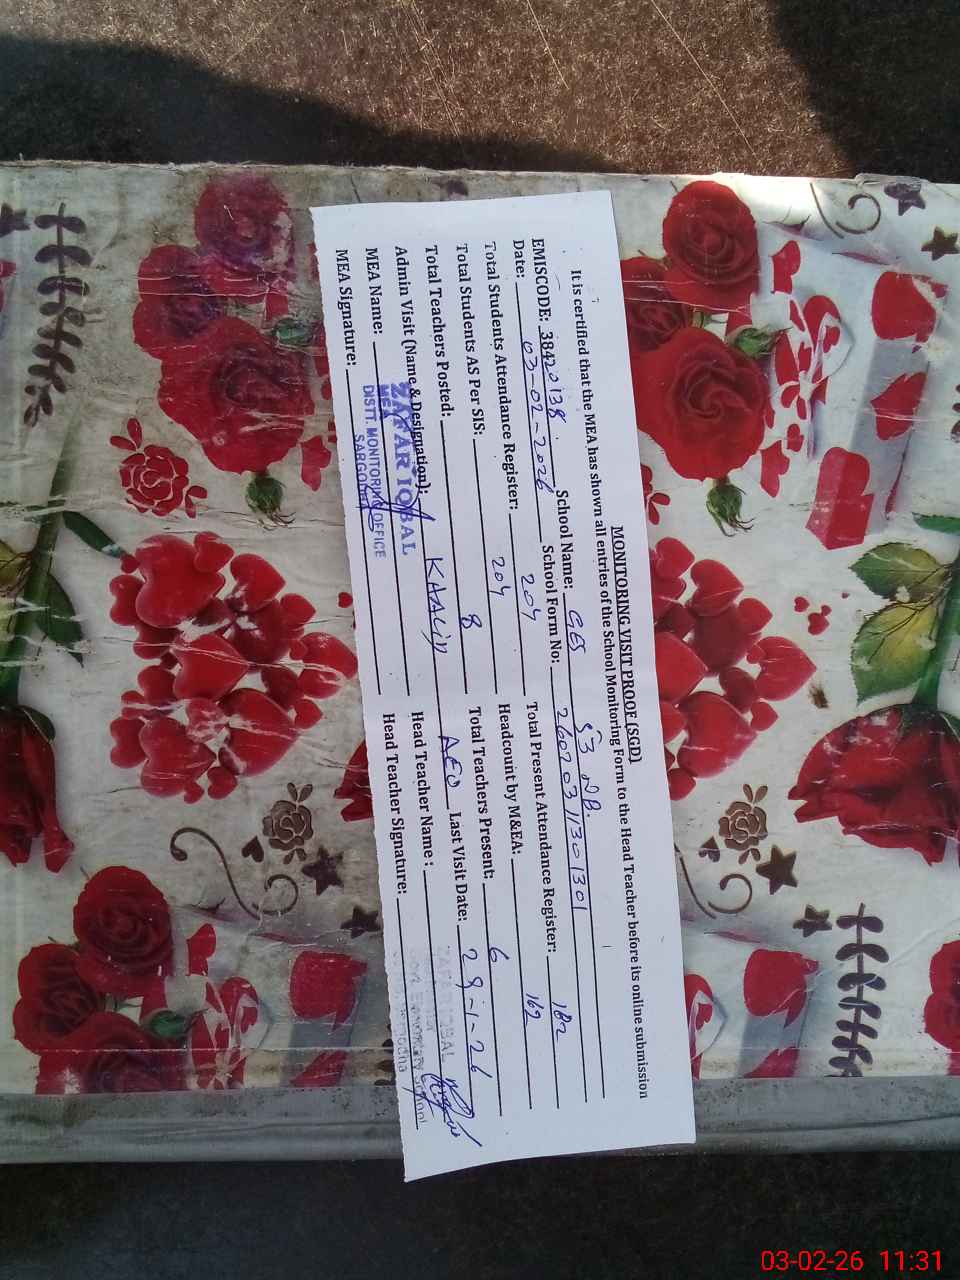 MONITORING VISIT PROOF (SGD)
It is certified that the MEA has shown all entries of the School Monitoring Form to the Head Teacher before its online submission
EMISCODE: 38420138 School Name: GES 53 NB.
Date: 03-02-2026 School Form No: 26020311301301
Total Students Attendance Register: 204 Total Present Attendance Register: 182
Total Students AS Per SIS: 204 Headcount by M&EA: 162
Total Teachers Posted: 8 Total Teachers Present: 6
Admin Visit (Name & Designation): AEO Last Visit Date: 29-1-26
MEA Name: Head Teacher Name :
MEA Signature: Head Teacher Signature:
ZAFAR IQBAL
MEA
DISTT. MONITORING OFFICE
SARGODHA
ZAFAR IQBAL
Govt. Elementary School
03-02-26 11:31